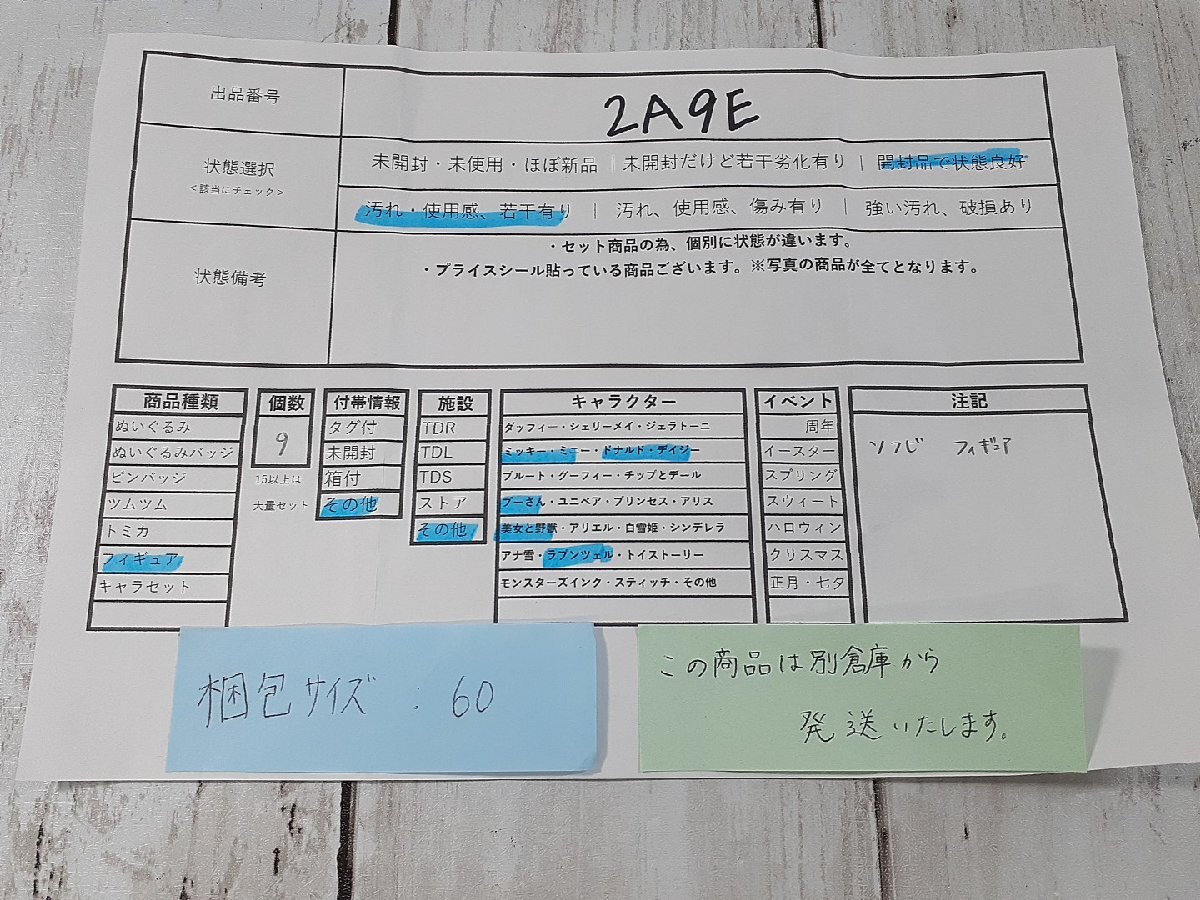 出品番号
2A9E
状態選択
<該当にチェック>
未開封・未使用・ほぼ新品 | 未開封だけど若干劣化有り | 開封品で状態良好
汚れ・使用感、若干有り | 汚れ、使用感、傷み有り | 強い汚れ、破損あり
状態備考
・セット商品の為、個別に状態が違います。
・プライスシール貼っている商品ございます。※写真の商品が全てとなります。
商品種類
ぬいぐるみ
ぬいぐるみバッジ
ピンバッジ
ツムツム
トミカ
フィギュア
キャラセット
個数
9
15以上は
大量セット
付帯情報
タグ付
未開封
箱付
その他
施設
TDR
TDL
TDS
ストア
その他
キャラクター
ダッフィー・シェリーメイ・ジェラトーニ
ミッキー・ミニー・ドナルド・デイジー
プルート・グーフィー・チップとデール
プーさん・ユニベア・プリンセス・アリス
美女と野獣・アリエル・白雪姫・シンデレラ
アナ雪・ラプンツェル・トイストーリー
モンスターズインク・スティッチ・その他
イベント
周年
イースター
スプリング
スウィート
ハロウィン
クリスマス
正月・七夕
注記
ソフビ フィギュア
梱包サイズ : 60
この商品は別倉庫から
発送いたします。